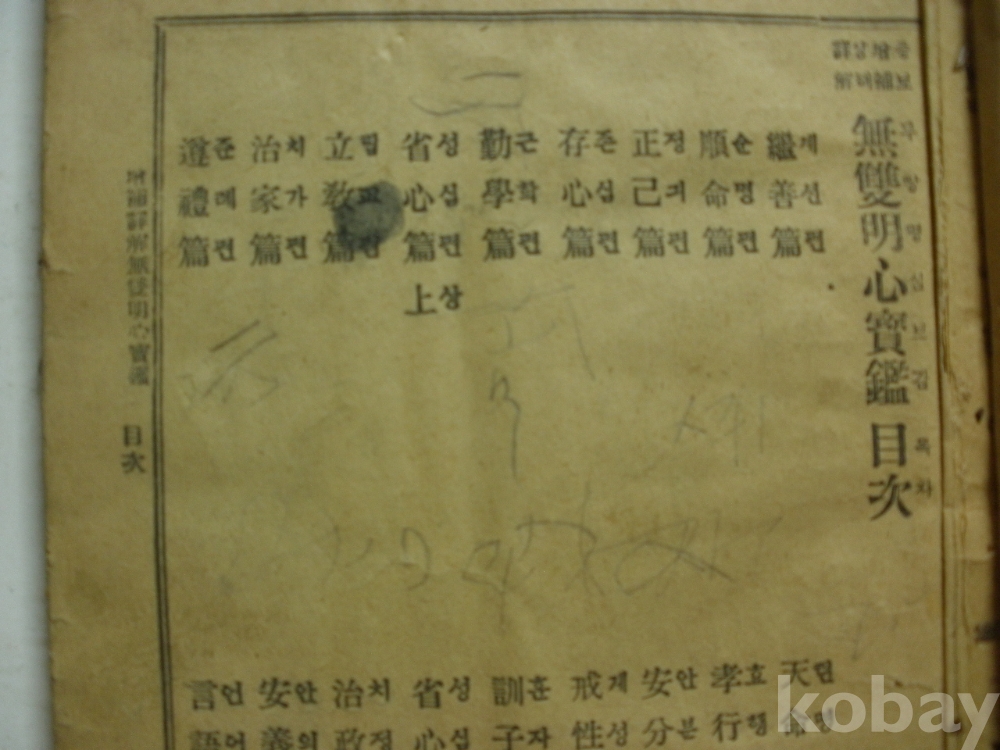 增補詳解
無雙明心寶鑑 目次
무쌍명심보감 목차
繼善篇 계선편
順命篇 순명편
正己篇 정긔편
存心篇 존심편
勤學篇 근학편
省心篇上 성심편상
立敎篇 립교편
治家篇 치가편
遵禮篇 준례편
天命 텬명
孝行 효행
安分 안분
戒性 계성
訓子 훈자
省心 성심
治政 치정
安義 안의
言語 언어
增補詳解無雙明心寶鑑 目次
kobay